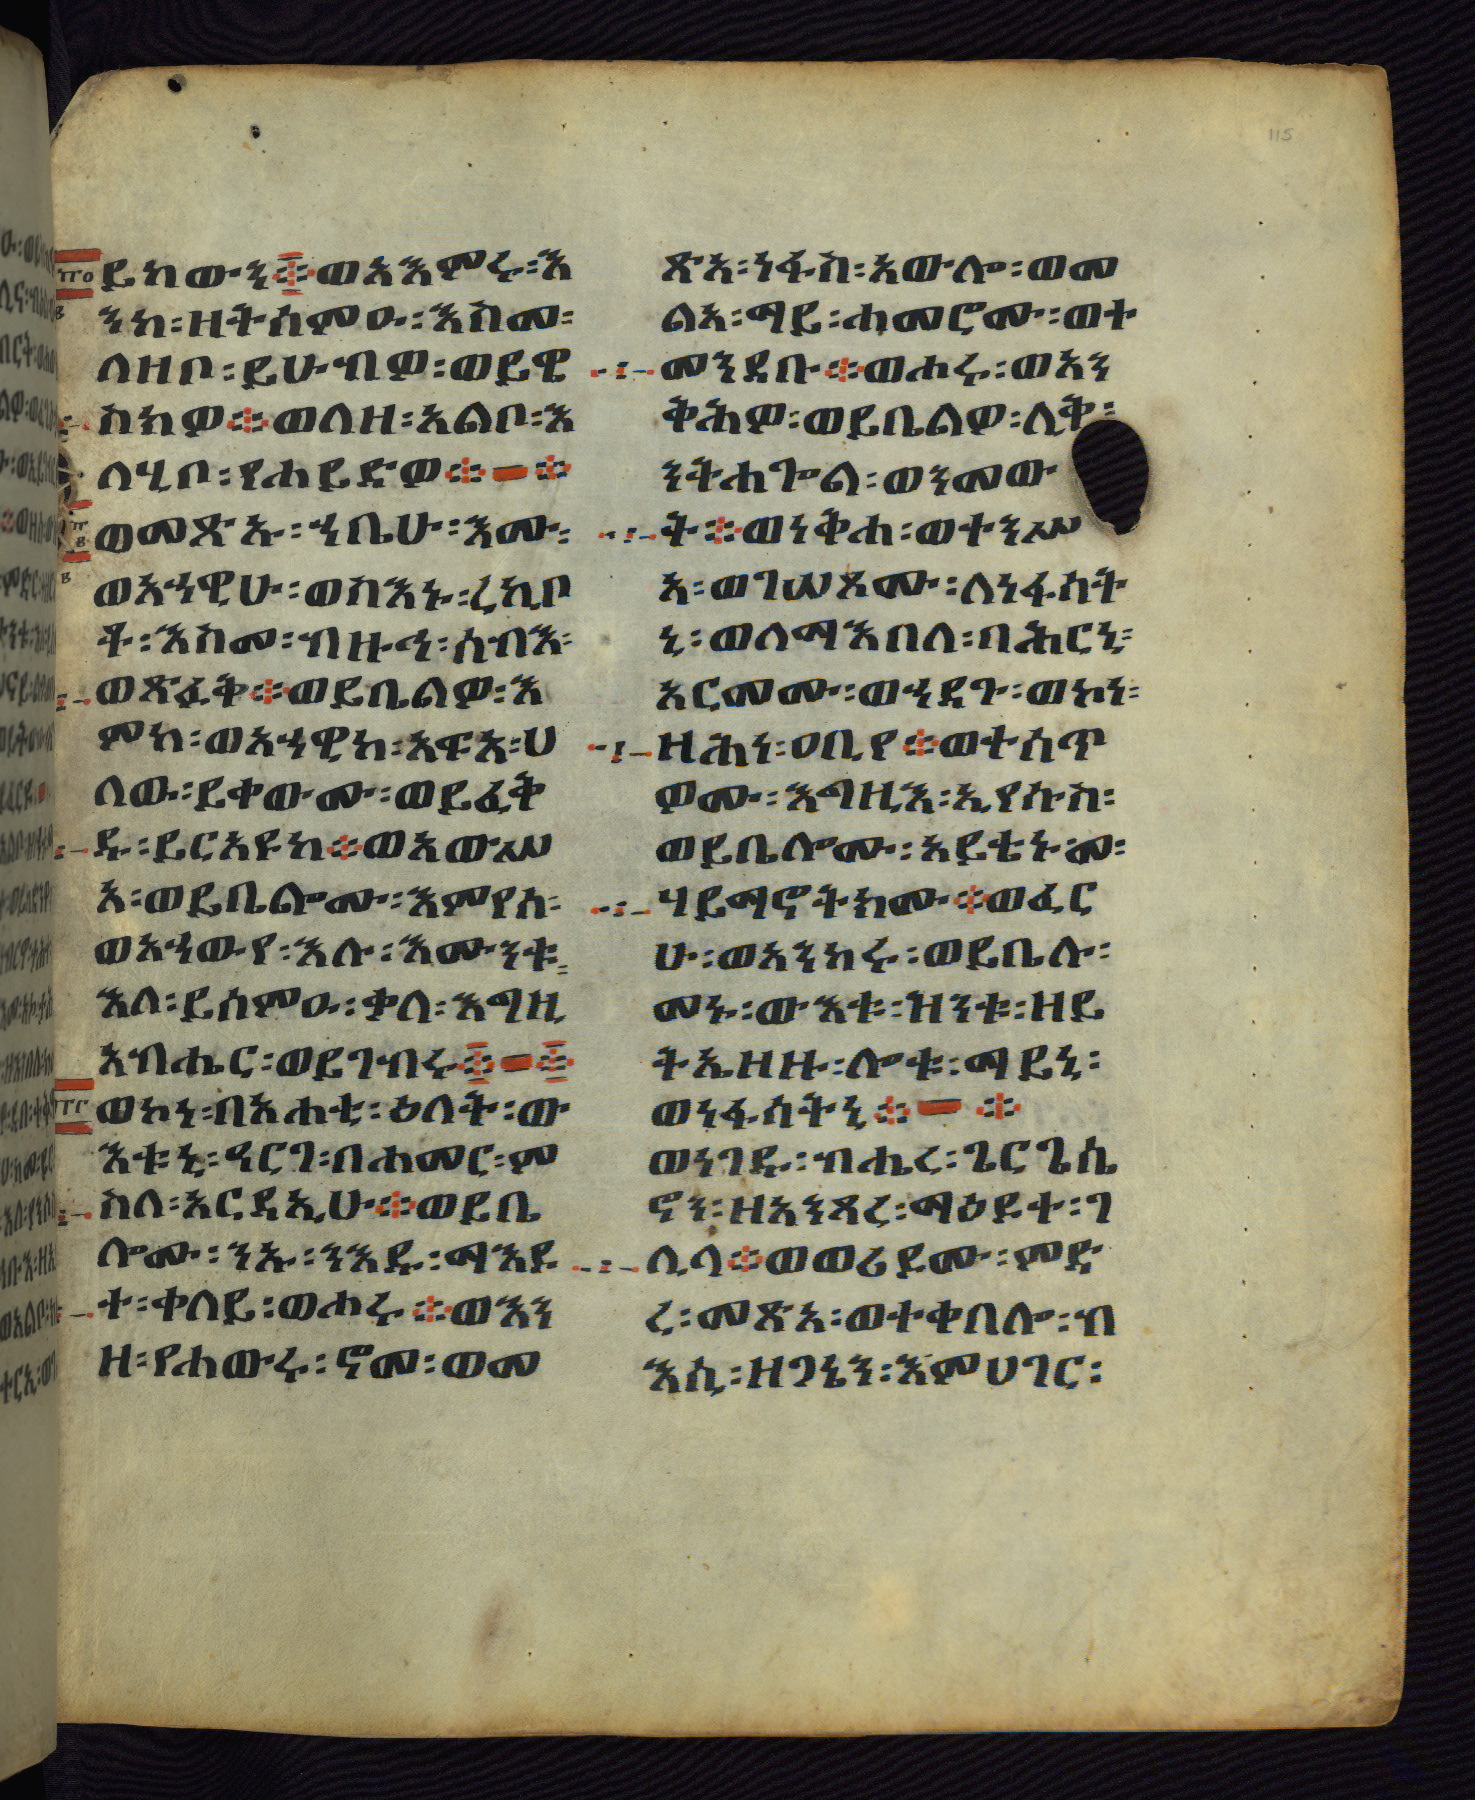 115
ይክውን ። ወአእምሩ ፡ እ
ንከ ፡ ዘትሰምዑ ፡ እስመ ፡
ለዘቦ ፡ ይሁብዎ ፡ ወይዌ
ስክዎ ። ወለዘ ፡ አልቦ ፡ እ
ለሂቦ ፡ የሐይድዎ ። – ።
ወመጽኡ ፡ ኀቤሁ ፡ እሙ ፡
ወአኀዊሁ ፡ ወስእኑ ፡ ረኪቦ
ቶ ፡ እስመ ፡ ብዙኅ ፡ ሰብእ ፡
ወጽፈቅ ። ወይቤልዎ ፡ እ
ምከ ፡ ወአኀዊከ ፡ አፍአ ፡ ሀ
ለው ፡ ይቀውሙ ፡ ወይፈቅ
ዱ ፡ ይርአዩከ ። ወአውሥ
አ ፡ ወይቤሎሙ ፡ እምየሰ ፡
ወአኀውየ ፡ እሉ ፡ እሙንቱ ፡
እለ ፡ ይሰምዑ ፡ ቃለ ፡ እግዚ
አብሔር ፡ ወይገብሩ ። – ።
ወኮነ ፡ በአሐቲ ፡ ዕለት ፡ ው
እቱኒ ፡ ዓርገ ፡ በሐመር ፡ ም
ስለ ፡ አርዳኢሁ ። ወይቤ
ሎሙ ፡ ንኡ ፡ ንእዱ ፡ ማእዶ
ተ ፡ ቀላይ ፡ ወሐሩ ። ወእን
ዘ ፡ የሐውሩ ፡ ኖመ ፡ ወመ
ጽአ ፡ ነፋስ ፡ አውሎ ፡ ወመ
ልአ ፡ ማይ ፡ ሐመሮሙ ፡ ወተ
መንደቡ ። ወሐሩ ፡ ወአን
ቅሕዎ ፡ ወይቤልዎ ፡ ሊቅ ፡
ንትሐጐል ፡ ወንመው
ት ። ወነቅሐ ፡ ወተንሥ
አ ፡ ወገሠጾሙ ፡ ለነፋሳት
ኒ ፡ ወለማእበለ ፡ ባሕርኒ ፡
አርመሙ ፡ ወኀደጉ ፡ ወኮነ ፡
ዛሕነ ፡ ዐቢየ ። ወተሰጥ
ዎሙ ፡ እግዚእ ፡ ኢየሱስ ፡
ወይቤሎሙ ፡ አይቴኑ ፡ መ ፡
ሃይማኖትክሙ ። ወፈር
ሁ ፡ ወአንከሩ ፡ ወይቤሉ ፡
መኑ ፡ ውእቱ ፡ ዝንቱ ፡ ዘይ
ትኤዘዙ ፡ ሎቱ ፡ ማይኒ ፡
ወነፋሳትኒ ። – ።
ወነገዱ ፡ ብሔረ ፡ ጌርጌሴ
ኖን ፡ ዘአንጻረ ፡ ማዕዶተ ፡ ገ
ሊላ ። ወወሪዶሙ ፡ ምድ
ረ ፡ መጽአ ፡ ወተቀበሎ ፡ ብ
እሲ ፡ ዘጋኔን ፡ እምሀገር ፡